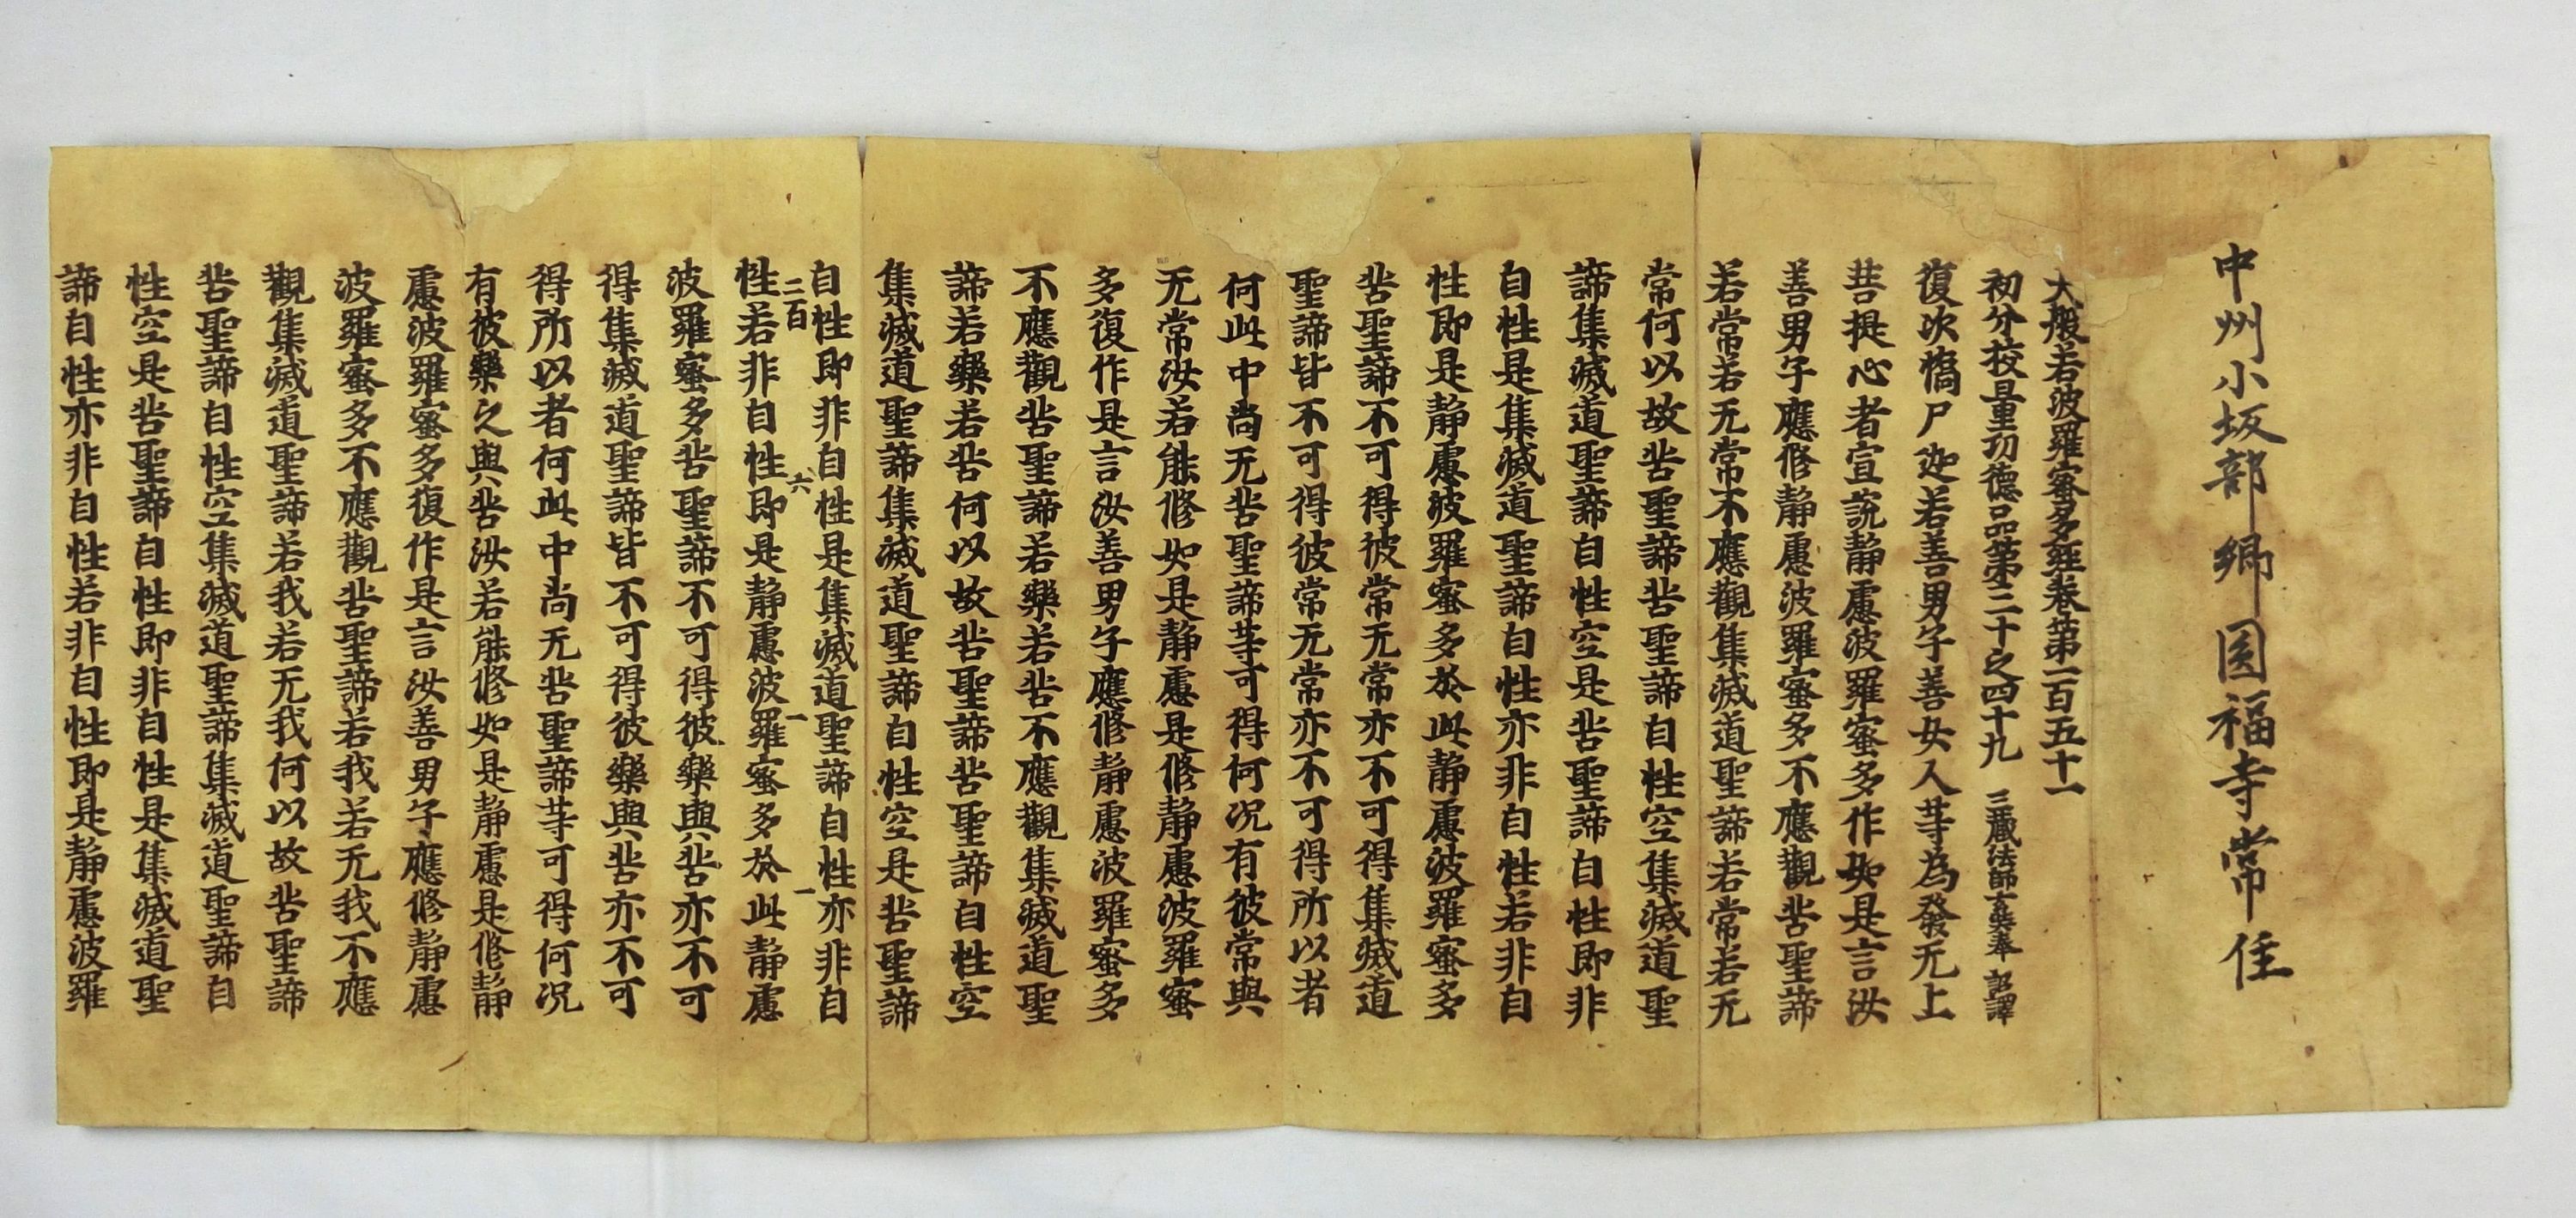 中州小坂部郷圓福寺常住
大般若波羅蜜多經卷第一百五十一
初分校量功德品第三十之四十九 三藏法師玄奘奉 詔譯
復次憍尸迦若善男子善女人等為發无上
菩提心者宣說靜慮波羅蜜多作如是言汝
善男子應修靜慮波羅蜜多不應觀苦聖諦
若常若无常不應觀集滅道聖諦若常若无
常何以故苦聖諦苦聖諦自性空集滅道聖
諦集滅道聖諦自性空是苦聖諦自性即非
自性是集滅道聖諦自性亦非自性若非自
性即是靜慮波羅蜜多於此靜慮波羅蜜多
苦聖諦不可得彼常无常亦不可得集滅道
聖諦皆不可得彼常无常亦不可得所以者
何此中尚无苦聖諦等可得何況有彼常與
无常汝若能修如是靜慮是修靜慮波羅蜜
多復作是言汝善男子應修靜慮波羅蜜多
不應觀苦聖諦若樂若苦不應觀集滅道聖
諦若樂若苦何以故苦聖諦苦聖諦自性空
集滅道聖諦集滅道聖諦自性空是苦聖諦
自性即非自性是集滅道聖諦自性亦非自
二百 六 一 一
性若非自性即是靜慮波羅蜜多於此靜慮
波羅蜜多苦聖諦不可得彼樂與苦亦不可
得集滅道聖諦皆不可得彼樂與苦亦不可
得所以者何此中尚无苦聖諦等可得何況
有彼樂之與苦汝若能修如是靜慮是修靜
慮波羅蜜多復作是言汝善男子應修靜慮
波羅蜜多不應觀苦聖諦若我若无我不應
觀集滅道聖諦若我若无我何以故苦聖諦
苦聖諦自性空集滅道聖諦集滅道聖諦自
性空是苦聖諦自性即非自性是集滅道聖
諦自性亦非自性若非自性即是靜慮波羅